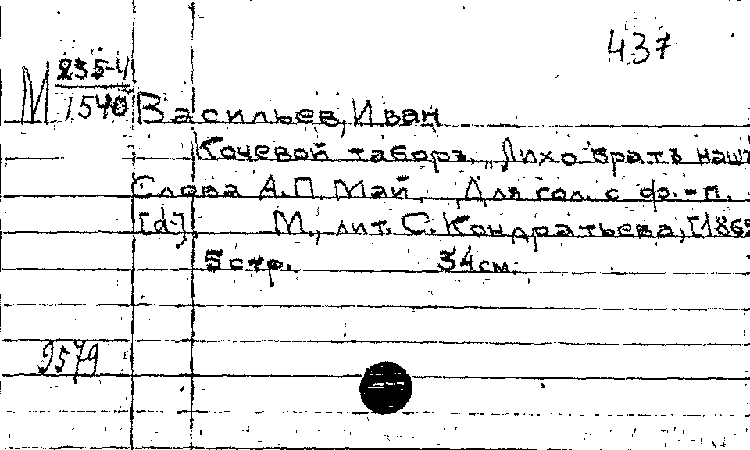 437
М 235-4/1540
Васильев, Иван
Кочевой таборъ. „Лихо братъ наш
Слова А.П. Май. Для гол. с ф.-п.
[d-]. М., лит. С. Кондратьева, [186
5 стр. 34 см.
9579